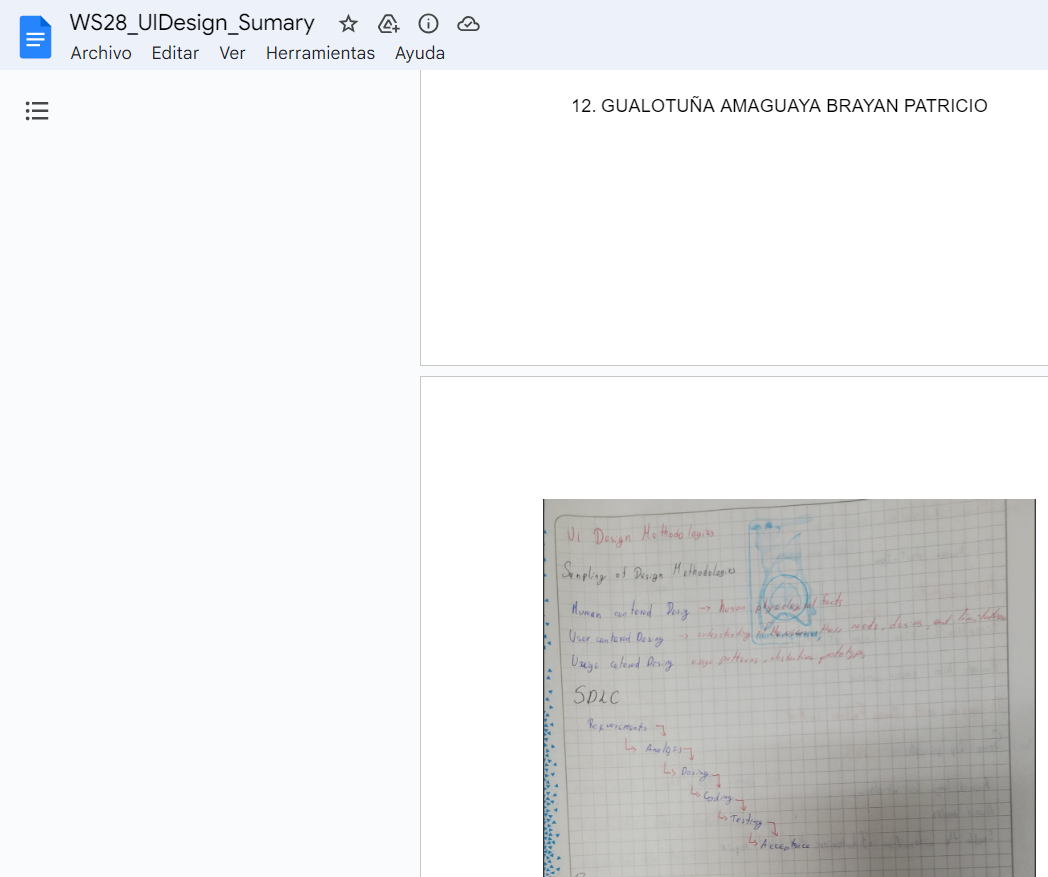 WS28_UIDesign_Sumary
Archivo Editar Ver Herramientas Ayuda
12. GUALOTUÑA AMAGUAYA BRAYAN PATRICIO
UI Design Methodologies
Sampling of Design Methodologies
Human centered Desig → human physiological facts
User centered Desing → understanding needs, desires, and limitations
Usage Desing usage patterns, prototypes
SDLC
Requirements
Analysis
Desing
Coding
Testing
Acceptance